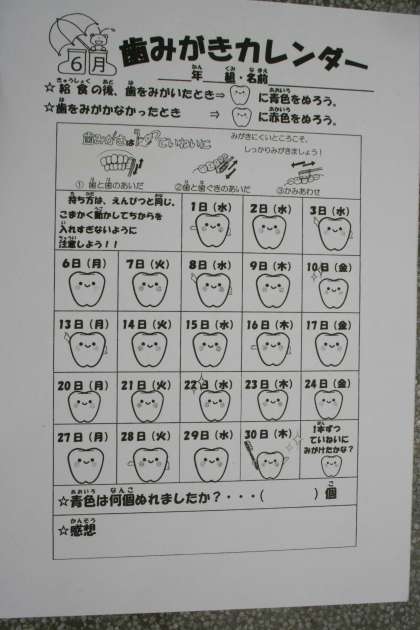 6月
歯みがきカレンダー
年 組・名前
☆給食の後、歯をみがいたとき⇒ に青色をぬろう。
☆歯をみがかなかったとき ⇒ に赤色をぬろう。
みがきにくいところこそ、
しっかりみがきましょう！
①歯と歯のあいだ ②歯と歯ぐきのあいだ ③かみあわせ
持ち方は、えんぴつと同じ、
こまかく動かしてちからを
入れすぎないように
注意しよう！！
1日（水） 2日（木） 3日（水）
6日（月） 7日（火） 8日（水） 9日（木） 10日（金）
13日（月） 14日（火） 15日（水） 16日（木） 17日（金）
20日（月） 21日（火） 22日（水） 23日（木） 24日（金）
27日（月） 28日（火） 29日（水） 30日（木）
1本ずつ
ていねいに
みがけたかな？
☆青色は何個ぬれましたか？・・・( )個
☆感想